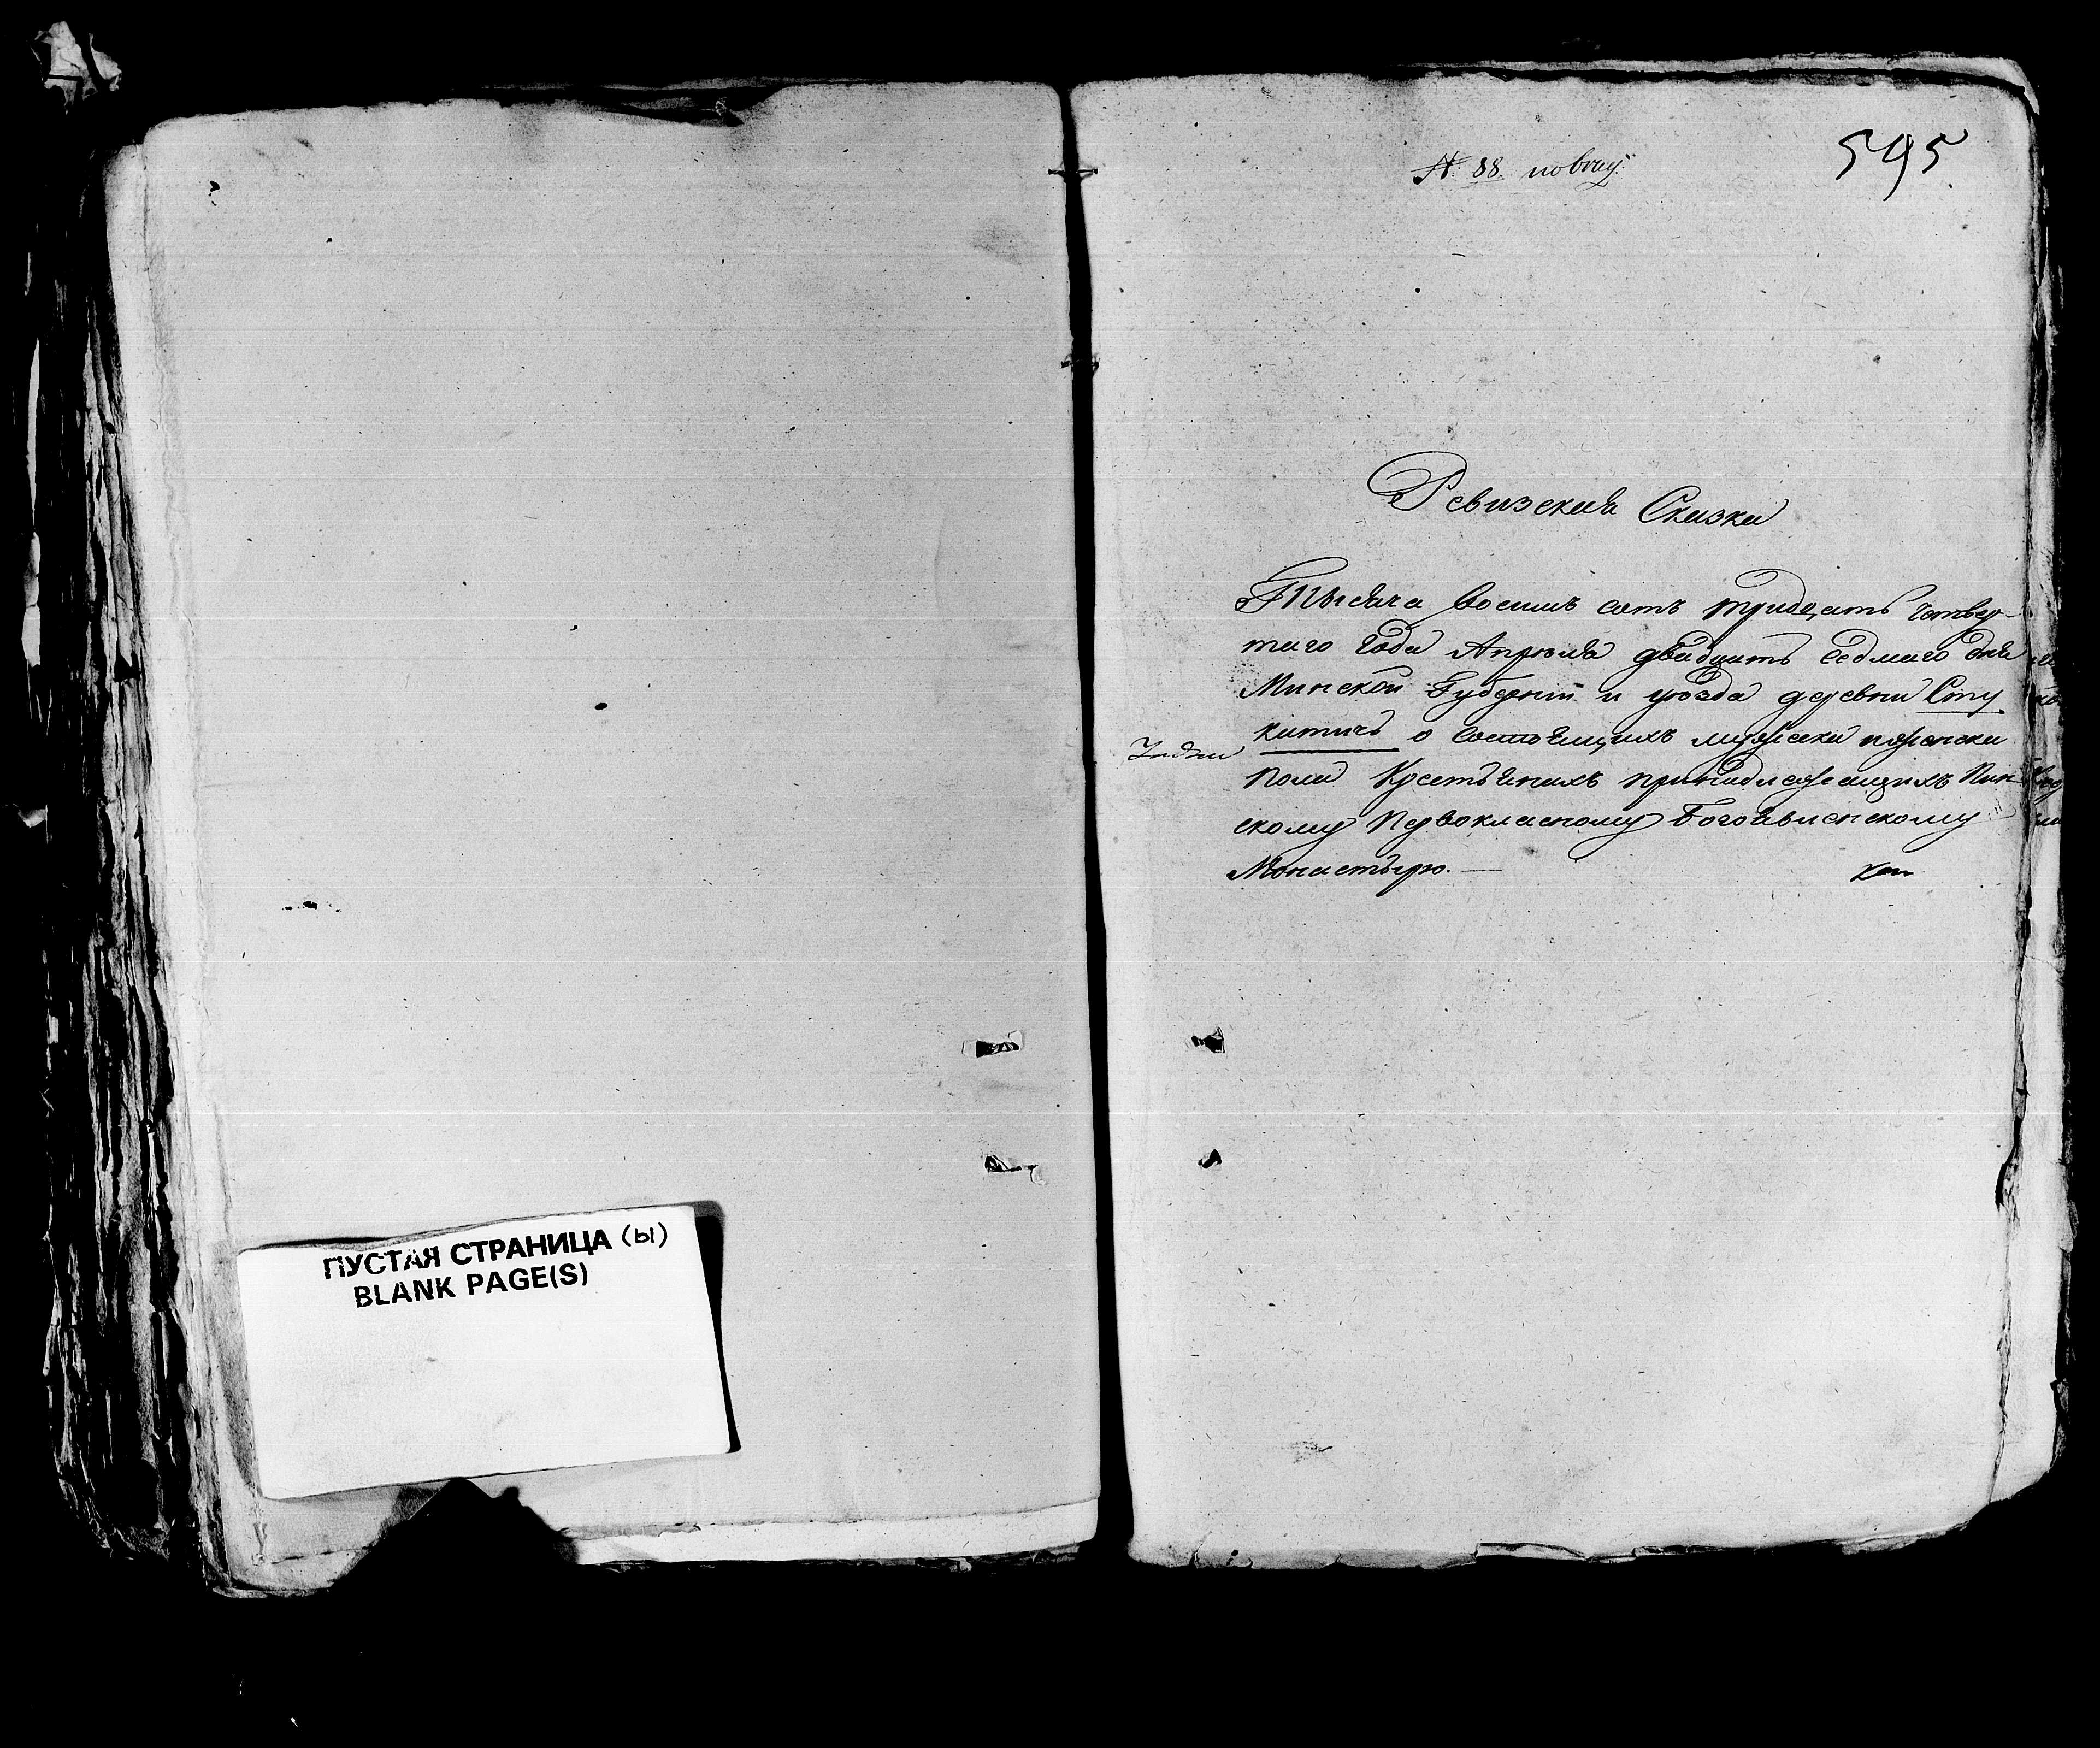 ПУСТАЯ СТРАНИЦА (ы)
BLANK PAGE(S)
595
№ 88.
Ревизская Сказка
Тысяча восемь сотъ тридцать четвер-
таго года Апреля двадцать седмаго дня
Минской Губернiи и уезда деревни Сту
катичъ о состоящихъ мужска и женска
пола Крестьянахъ принадлежащихъ Пин-
скому Первокласному Богоявленскому
Монастырю. —